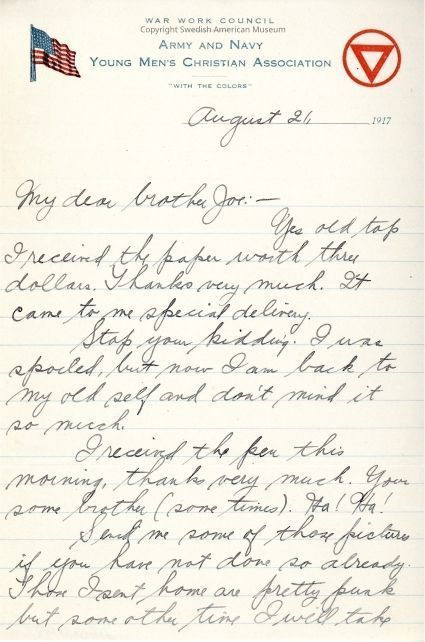 WAR WORK COUNCIL
Copyright Swedish American Museum
ARMY AND NAVY
YOUNG MEN'S CHRISTIAN ASSOCIATION
"WITH THE COLORS"
August 21, 1917
My dear brother Joe:—
Yes old top
I received the paper worth three
dollars. Thanks very much. It
came to me special delivery.
Stop your kidding. I was
spoiled, but now I am back to
my old self and don't mind it
so much.
I received the pen this
morning, thanks very much. Your
some brother (some times). Ha! Ha!
Send me some of those pictures
if you have not done so already.
Those I sent home are pretty punk
but some other time I will take